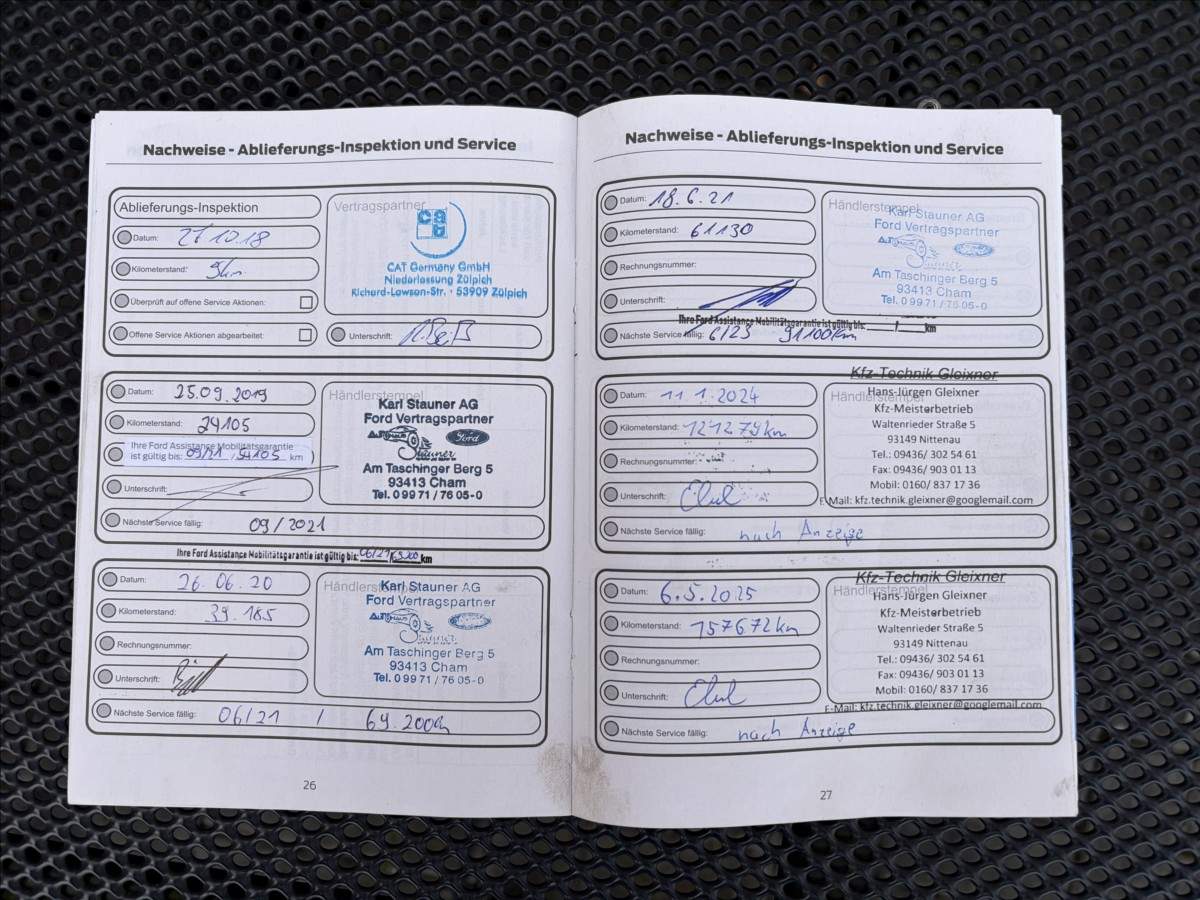 Nachweise - Ablieferungs-Inspektion und Service
Ablieferungs-Inspektion
Datum: 27.10.18
Kilometerstand: 9km
Überprüft auf offene Service Aktionen:
Offene Service Aktionen abgearbeitet:
Vertragspartner
cat
CAT Germany GmbH
Niederlassung Zülpich
Richard-Lawson-Str. · 53909 Zülpich
Unterschrift:
Datum: 25.09.2019
Kilometerstand: 24105
Ihre Ford Assistance Mobilitätsgarantie
ist gültig bis: 09/21 , 54105 km
Unterschrift:
Nächste Service fällig: 09/2021
Händlerstempel
Karl Stauner AG
Ford Vertragspartner
Stauner
Ford
Am Taschinger Berg 5
93413 Cham
Tel. 0 99 71 / 76 05-0
Ihre Ford Assistance Mobilitätsgarantie ist gültig bis: 06/21 km
Datum: 26.06.20
Kilometerstand: 39.185
Rechnungsnummer:
Unterschrift:
Nächste Service fällig: 06/21 / 69.200
Händlerstempel
Karl Stauner AG
Ford Vertragspartner
Stauner
Am Taschinger Berg 5
93413 Cham
Tel. 0 99 71 / 76 05-0
26
Nachweise - Ablieferungs-Inspektion und Service
Datum: 18.6.21
Kilometerstand: 61130
Rechnungsnummer:
Unterschrift:
Ihre Ford Assistance Mobilitätsgarantie ist gültig bis: / km
Nächste Service fällig: 6/23 91100km
Händlerstempel
Karl Stauner AG
Ford Vertragspartner
Stauner
Am Taschinger Berg 5
93413 Cham
Tel. 0 99 71 / 76 05-0
Datum: 11.1.2024
Kilometerstand: 121279km
Rechnungsnummer:
Unterschrift:
Nächste Service fällig: nach Anzeige
Händlerstempel
Kfz-Technik Gleixner
Hans-Jürgen Gleixner
Kfz-Meisterbetrieb
Waltenrieder Straße 5
93149 Nittenau
Tel.: 09436/ 302 54 61
Fax: 09436/ 903 01 13
Mobil: 0160/ 837 17 36
E-Mail: kfz.technik.gleixner@googlemail.com
Datum: 6.5.2025
Kilometerstand: 157672km
Rechnungsnummer:
Unterschrift:
Nächste Service fällig: nach Anzeige
Händlerstempel
Kfz-Technik Gleixner
Hans-Jürgen Gleixner
Kfz-Meisterbetrieb
Waltenrieder Straße 5
93149 Nittenau
Tel.: 09436/ 302 54 61
Fax: 09436/ 903 01 13
Mobil: 0160/ 837 17 36
E-Mail: kfz.technik.gleixner@googlemail.com
27